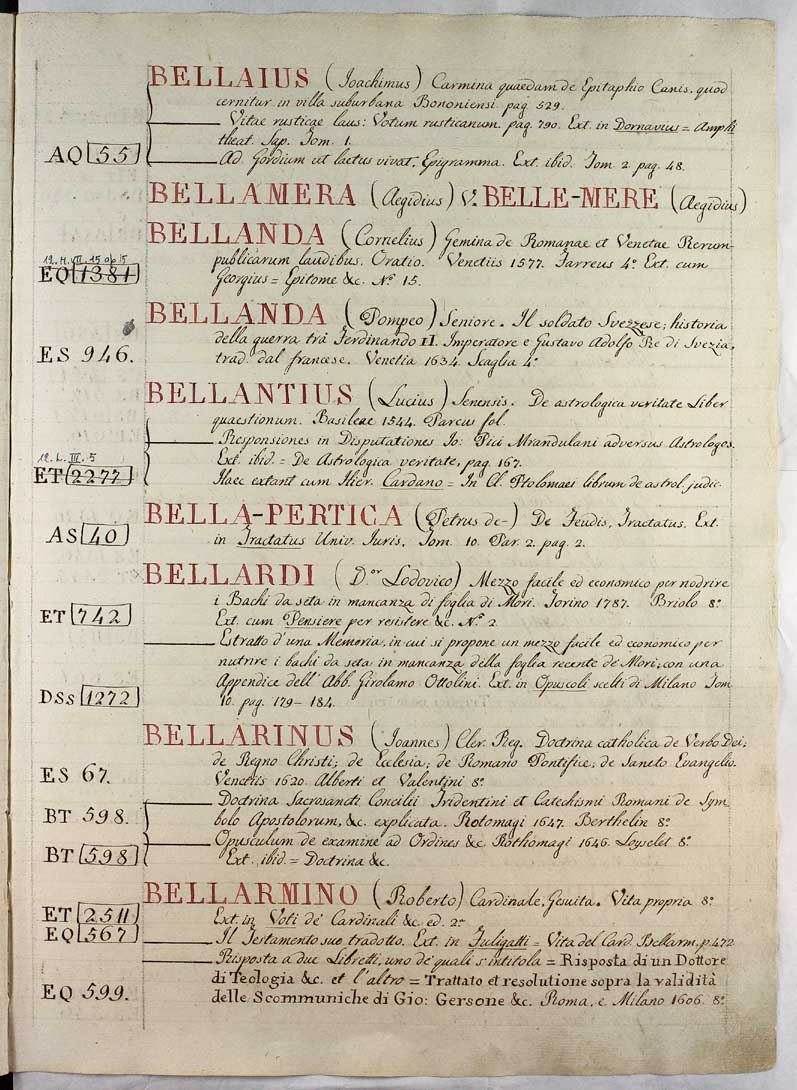 BELLAIUS (Joachimus) Carmina quaedam de Epitaphio Canis, quod
cernitur in villa suburbana Bononiensi. pag. 529.
Vitae rusticae laus: Votum rusticanum. pag. 790. Ext. in Dornavius = Amphi
theat. Sap. Tom. 1.
AQ 55
Ad Gordium ut laetus vivat, Epigramma. Ext. ibid. Tom 2. pag. 48.
BELLAMERA (Aegidius) V. BELLE-MERE (Aegidius)
BELLANDA (Cornelius) Gemina de Romanae et Venetae Rerum-
12. H. VII. 15 op. 15
publicarum laudibus. Oratio. Venetiis 1577. Farreus 4.º Ext. cum
EQ 1381
Georgius = Epitome &c. N.º 15.
BELLANDA (Pompeo) Seniore. Il soldato Svezzese; historia
della guerra trà Ferdinando II. Imperatore e Gustavo Adolfo Re di Svezia,
ES 946.
trad. dal francese. Venetia 1634. Scaglia 4.º
BELLANTIUS (Lucius) Senensis. De astrologica veritate Liber
quaestionum. Basileae 1544. Parcus fol.
Responsiones in Disputationes Jo: Pici Mirandulani adversus Astrologos.
12. L. III. 5
Ext. ibid = De Astrologica veritate, pag. 167.
ET 2277
Haec extant cum Hier. Cardano = In Cl. Ptolomaei librum de astrol. judic.
BELLA-PERTICA (Petrus de-) De Feudis, Tractatus. Ext.
AS 40
in Tractatus Univ. Iuris, Tom. 10. Par. 2. pag. 2.
BELLARDI (D.or Lodovico) Mezzo facile ed economico per nodrire
i Bachi da seta in mancanza di foglia di Mori. Torino 1787. Briolo 8.º
ET 742
Ext. cum Pensiere per resistere &c. N.º 2
Estratto d'una Memoria, in cui si propone un mezzo facile ed economico per
nutrire i bachi da seta in mancanza della foglia recente de' Mori, con una
Appendice dell' Abb. Girolamo Ottolini. Ext. in Opuscoli scelti di Milano Tom
DSs 1272
10. pag. 179-184.
BELLARINUS (Joannes) Cler. Reg. Doctrina catholica de Verbo Dei;
de Regno Christi; de Ecclesia; de Romano Pontifice; de Sancto Evangelio.
ES 67.
Venetiis 1620. Alberti et Valentini 8.º
Doctrina Sacrosancti Concilii Tridentini et Catechismi Romani de Sym
BT 598.
bolo Apostolorum, &c. explicata. Rotomagi 1647. Berthelin 8.º
Opusculum de examine ad Ordines &c. Rothomagi 1646. Loyselet 8.º
BT 598
Ext. ibid. = Doctrina &c.
BELLARMINO (Roberto) Cardinale, Gesuita. Vita propria 8.º
ET 2511
Ext. in Voti de' Cardinali &c. ed. 2.º
EQ 567
Il Testamento suo tradotto. Ext. in Fuligatti = Vita del Card. Bellarm. p. 472
Risposta a due Libretti, uno de' quali s'intitola = Risposta di un Dottore
di Teologia &c. et l'altro = Trattato et resolutione sopra la validità
EQ 599.
delle Scommuniche di Gio: Gersone &c. Roma, e Milano 1606. 8.º